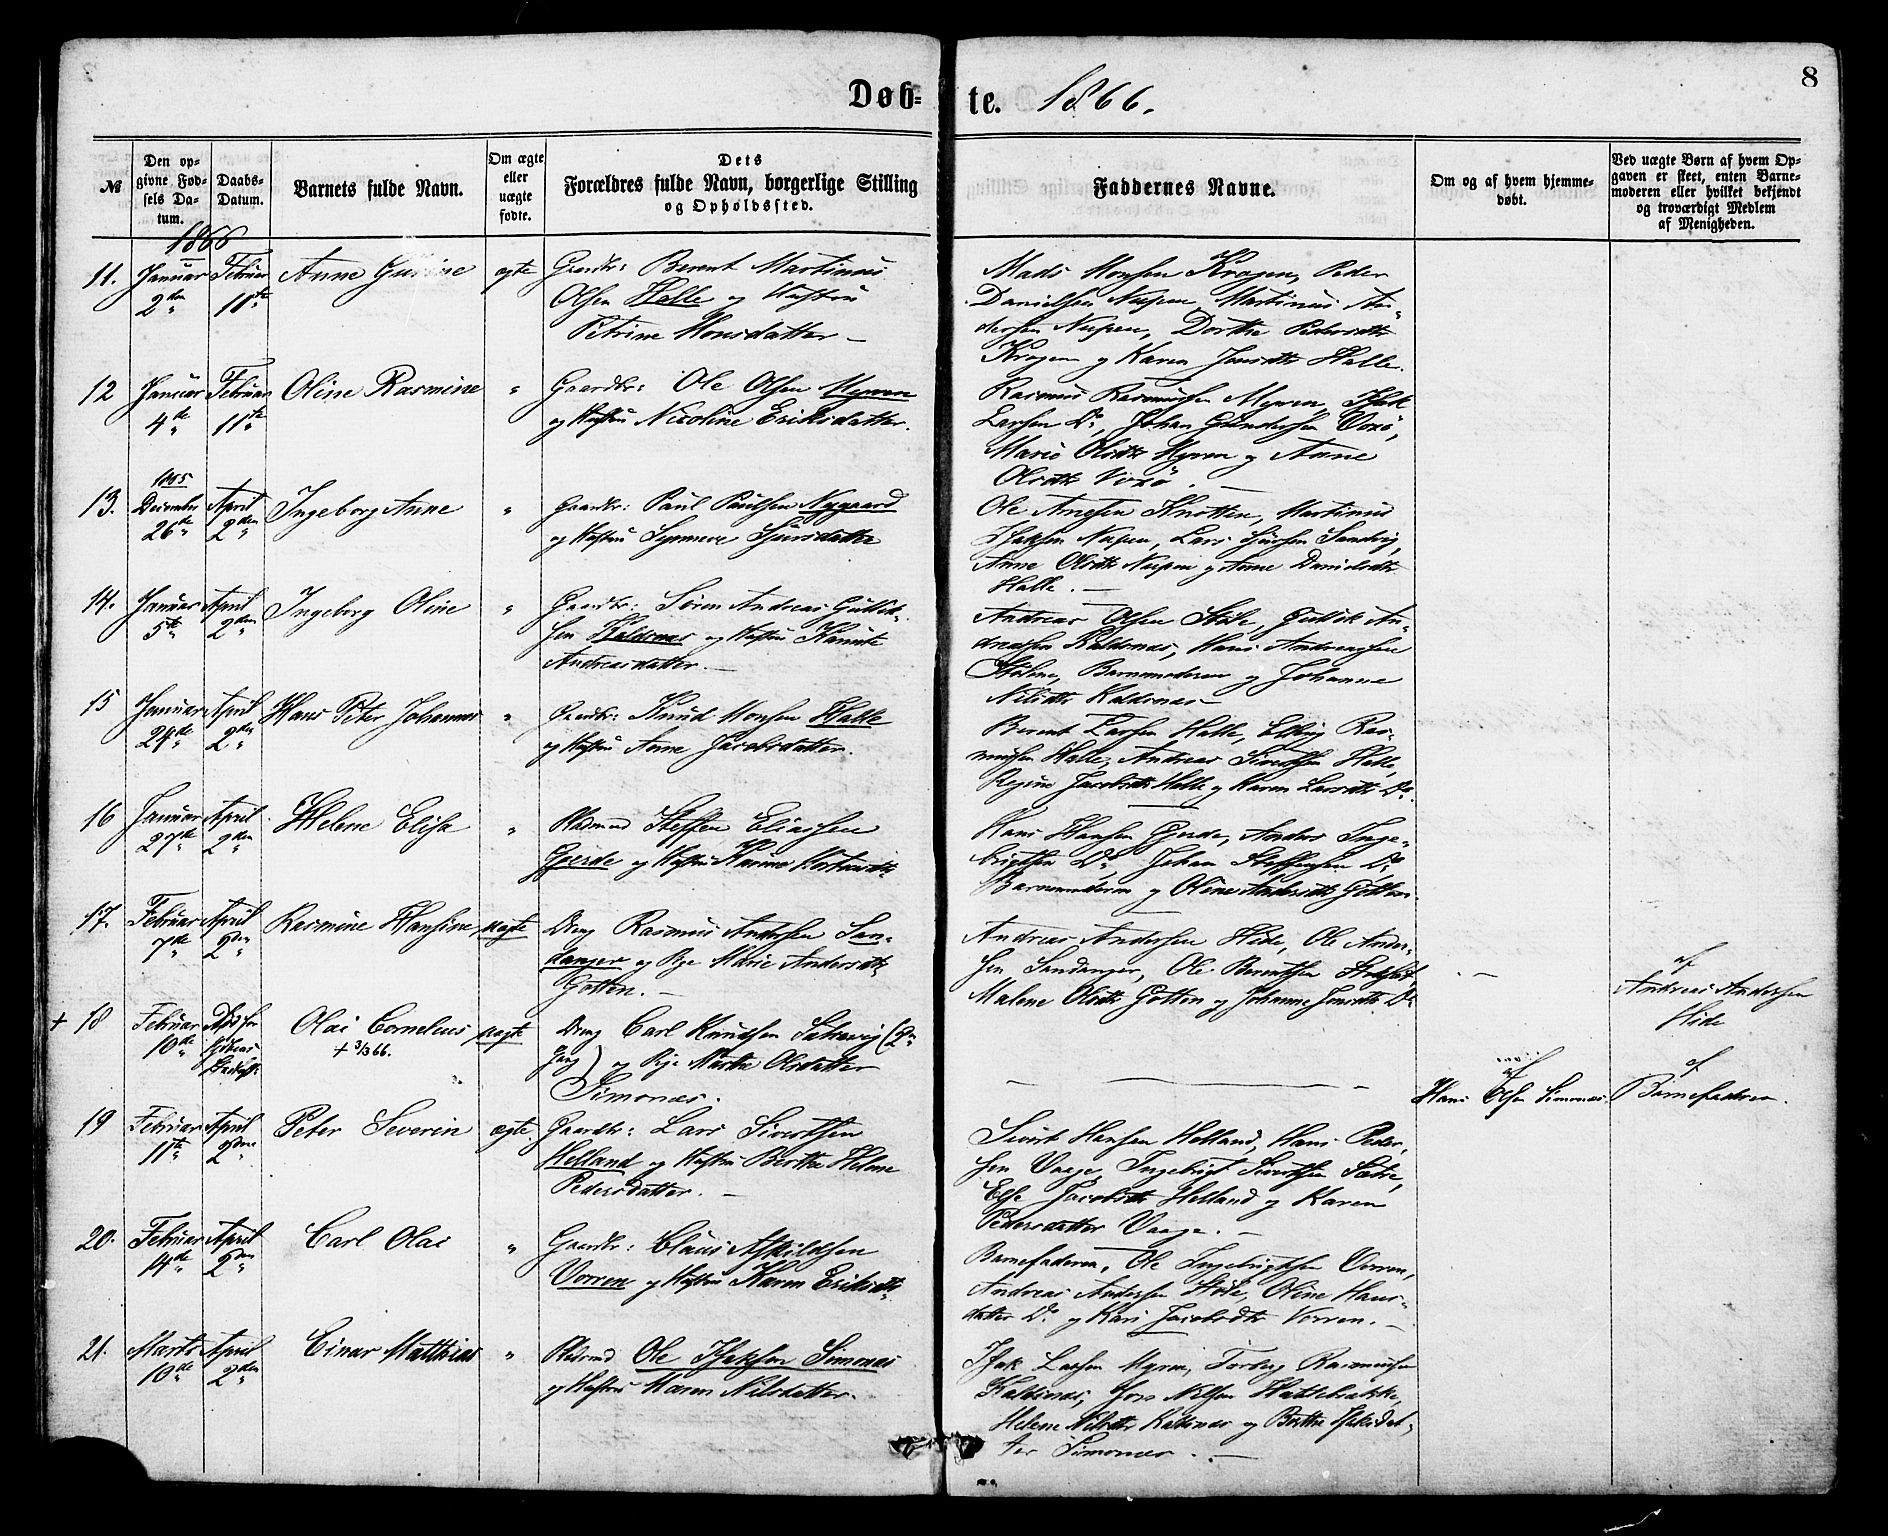 8
Døb-te. 1866.
№
Den op-
givne Fød-
sels Da-
tum.
Daabs-
Datum.
Barnets fulde Navn.
Om ægte
eller
uægte
fødte.
Dets
Forældres fulde Navn, borgerlige Stilling
og Opholdssted.
Faddernes Navne.
Om og af hvem hjemme-
døbt.
Ved uægte Børn af hvem Op-
gaven er skeet, enten Barne-
moderen eller hvilket bekjendt
og troværdigt Medlem
af Menigheden.
1866
11. Januar Februar Anne Gurine ægte Gaardbr: Berent Martinus
2den 11te Olsen Halle og Hustru
Petrine Monsdatter —
Mads Monsen Krogen, Peder
Danielsen Nupen, Martinus An-
dersen Nupen, Dorthe Pedersdtr
Krogen og Karen Jonsdtr Halle.
12 Januar Februar Oline Rasmine " Gaardbr: Ole Olsen Myren
4de 11te og Hustru Nicoline Eriksdatter.
Rasmus Rasmussen Myren, Isak
Larsen Do, Johan Gundersen
Marie Olsdtr Myren og Anne
Olsdtr
1865
13. December April Ingeborg Anne " Gaardbr: Paul Paulsen Nygaard
26de 2den og Hustru Synneve Sjursdatter
Ole Arnesen Knotten, Martinus
Isaksen Nupen, Lars Sjursen Sandvig,
Anne Olsdtr Nupen og Anne Danielsdtr
Halle. —
14. Januar April Ingeborg Oline " Gaardbr: Søren Andreas Gullik-
5te 2den sen Kaldsnæs og Hustru Hanna
Andreasdatter. —
Andreas Olsen Hide, Gullik An-
dreassen Kaldsnæs, Hans Andreassen
Barnemoderen og Johanne
Nilsdtr Kaldsnæs —
15 Januar April Hans Peter Johannes " Gaardbr: Knud Monsen Halle
24de 2den og Hustru Anne Jacobsdatter.
Berent Larsen Halle, Elling Ras-
mussen Halle, Andreas Sivertsen Halle,
Regine Jacobsdtr Halle og Karen Larsdtr Do.
16 Januar April Helene Elisa " Pladsmd Steffen Eliassen
27de 2den Gjerde og Hustru Karine
Hans Hansen Gjerde, Anders Inge-
brigtsen Do, Johan Steffensen Do
Barnemoderen og Oline Andersdtr Gotten.
17. Februar April Rasmine Hansine uægte Dreng Rasmus Andersen San-
7de 2den danger og Pige Marie Andersdtr
Gotten. —
Andreas Andersen Hide, Ole Ander-
sen Sandanger, Ole Berentsen
Malene Olsdtr Gotten og Johanne Jonsdtr Do
—
af
Andreas Andersen
Hide
+ 18 Februar Død før Olai Cornelius uægte Dreng Carl Knudsen Sætrevig (2den
10de + 3/3 66. Gang) og Pige Marthe Olsdatter
Simonæs.
af
Hans Olsen Simonæs.
af
Barnefaderen.
19 Februar April Peter Severin ægte. Gaardbr: Lars Sivertsen
11te 2den Helland og Hustru Berthe Helene
Pedersdatter. —
Sivert Hansen Helland, Hans Peder-
sen Vaage, Ingebrigt Sivertsen Sætre,
Else Jacobsdtr Helland og Karen
Pedersdatter Vaage. —
20. Februar April Carl Olai " Gaardbr: Claus Askildsen
14de 2den Vorren og Hustru Karen Eriksdtr
Barnefaderen, Ole Ingebrigtsen Vorren,
Andreas Andersen Hide, Oline Hans-
datter Do og Kari Jacobsdtr Vorren. —
21. Marts April Einar Matthias " Pladsmd Ole Isaksen Simonæs
10de 2den og Hustru Maren Nilsdatter.
Isak Larsen Myren, Torberg Rasmussen
Kaldsnæs, Jon Nilsen Hattebakke,
Helene Nilsdtr Kaldsnæs og Berthe Isaksdat-
ter Simonæs. —